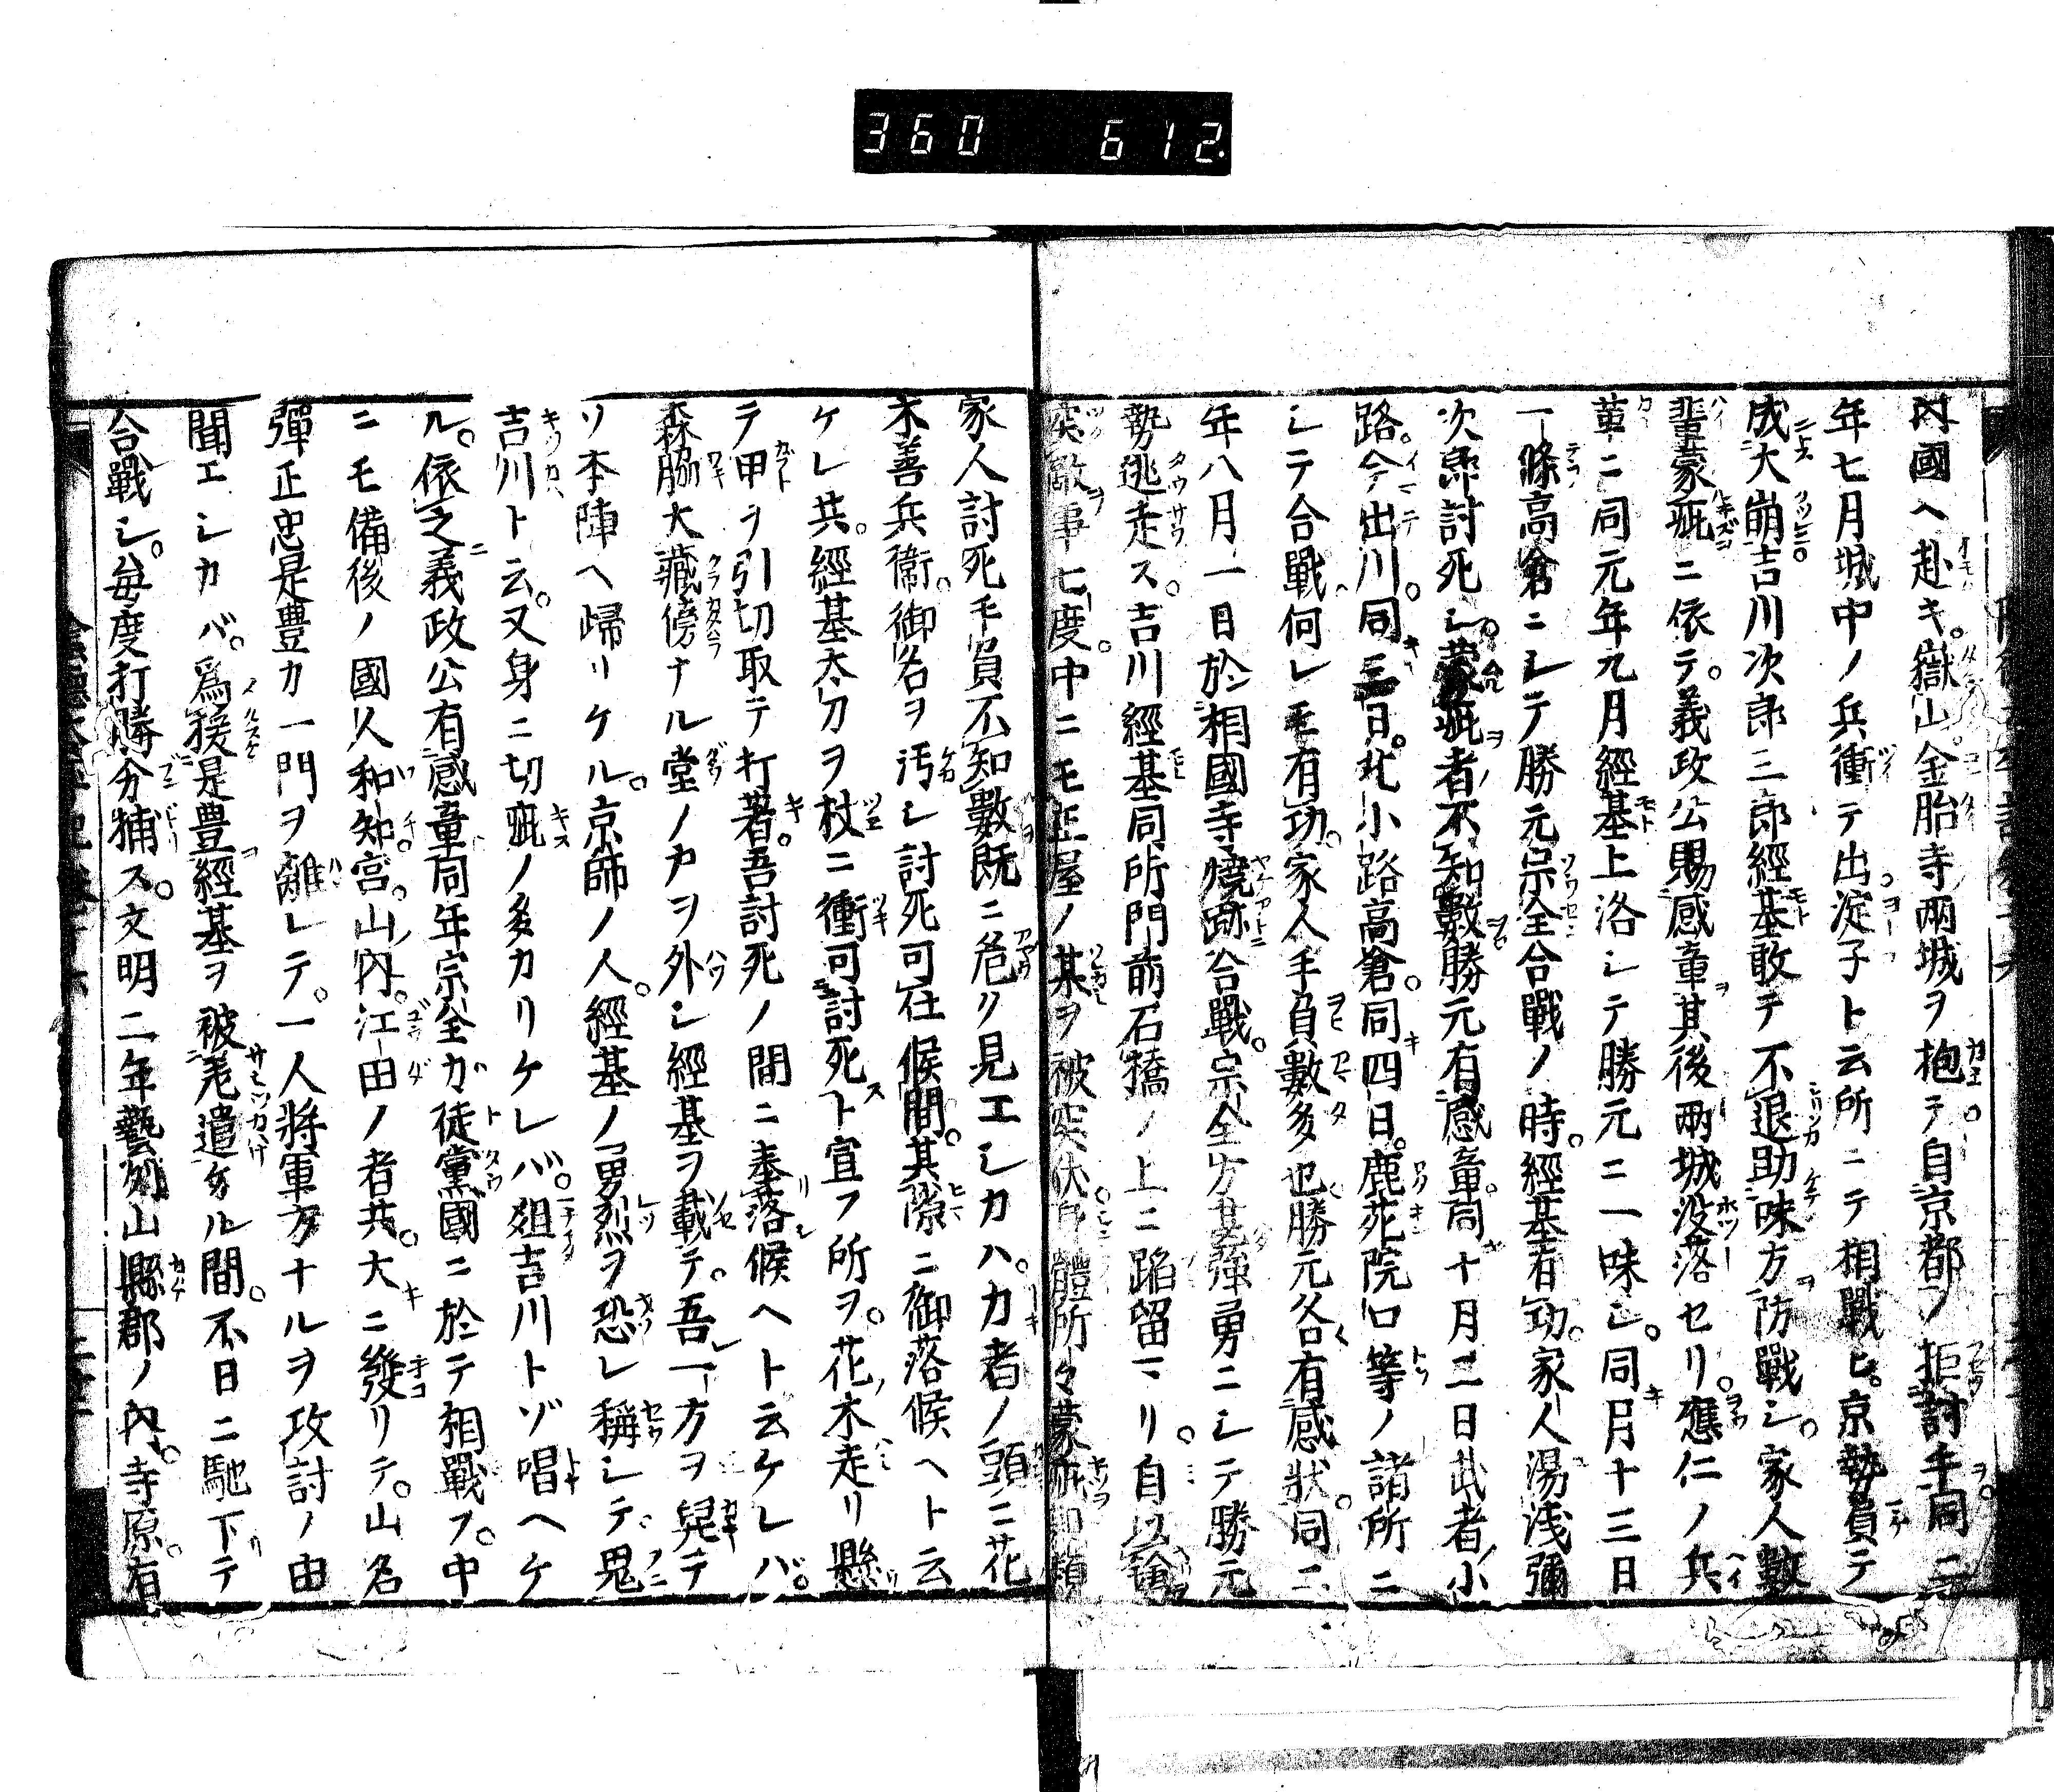 360 612
内國ヘ赴キ。嶽山。金胎寺兩城ヲ抱テ自京都ノ拒討手。同二
年七月城中ノ兵衝テ出。淀子ト云所ニテ相戰ヒ。京勢負テ
成大崩吉川次郎三郎經基敢テ不退助味方防戰シ。家人數
輩蒙疵ニ依テ。義政公賜感章其後兩城没落セリ。應仁ノ兵
革ニ同元年九月經基上洛シテ勝元ニ一味シ。同月十三日
一條高倉ニシテ勝元宗全合戰ノ時。經基有功。家人湯淺彌
次郎討死シ。蒙疵者不知數勝元有感章。同十月二日武者小
路。今出川。同三日。北小路高倉。同四日。鹿苑院口等ノ諸所ニ
シテ合戰何レモ有功。家人手負數多也勝元各有感狀。同二
年八月一日於相國寺燒跡合戰。宗全方甚強勇ニシテ勝元
勢逃走ス。吉川經基同所門前石橋ノ上ニ蹈留マリ。自以鑓
突敵事七度。中ニモ正屋ノ某ヲ被突伏身體所々蒙疵郎類
家人討死手負不知數既ニ危リ見エシカハ。カ者ノ頭ニ花
木善兵衞。御名ヲ汚シ討死可仕候間。其隙ニ御落候ヘト云
ケレ共。經基太刀ヲ杖ニ衝可討死ト宣フ所ヲ。花木走リ懸
テ甲ヲ引切取テ打著。吾討死ノ間ニ奉落候ヘト云ケレバ。
森脇大藏傍ナル堂ノ戸ヲ外シ經基ヲ載テ。吾一方ヲ舁テ
ソ本陣ヘ歸リケル。京師ノ人。經基ノ勇烈ヲ恐レ稱シテ鬼
吉川ト云。又身ニ切疵ノ多カリケレバ。爼吉川トゾ唱ヘケ
ル。依之義政公有感章同年宗全カ徒黨國ニ於テ相戰フ。中
ニモ備後ノ國人和知。宮。山内。江田ノ者共。大ニ發リテ。山名
彈正忠是豊カ一門ヲ離レテ。一人將軍方ナルヲ攻討ノ由
聞エシカバ。爲援是豊經基ヲ被差遣ケル間。不日ニ馳下テ
合戰シ。毎度打勝分捕ス。文明二年藝州山縣郡ノ内。寺原。有